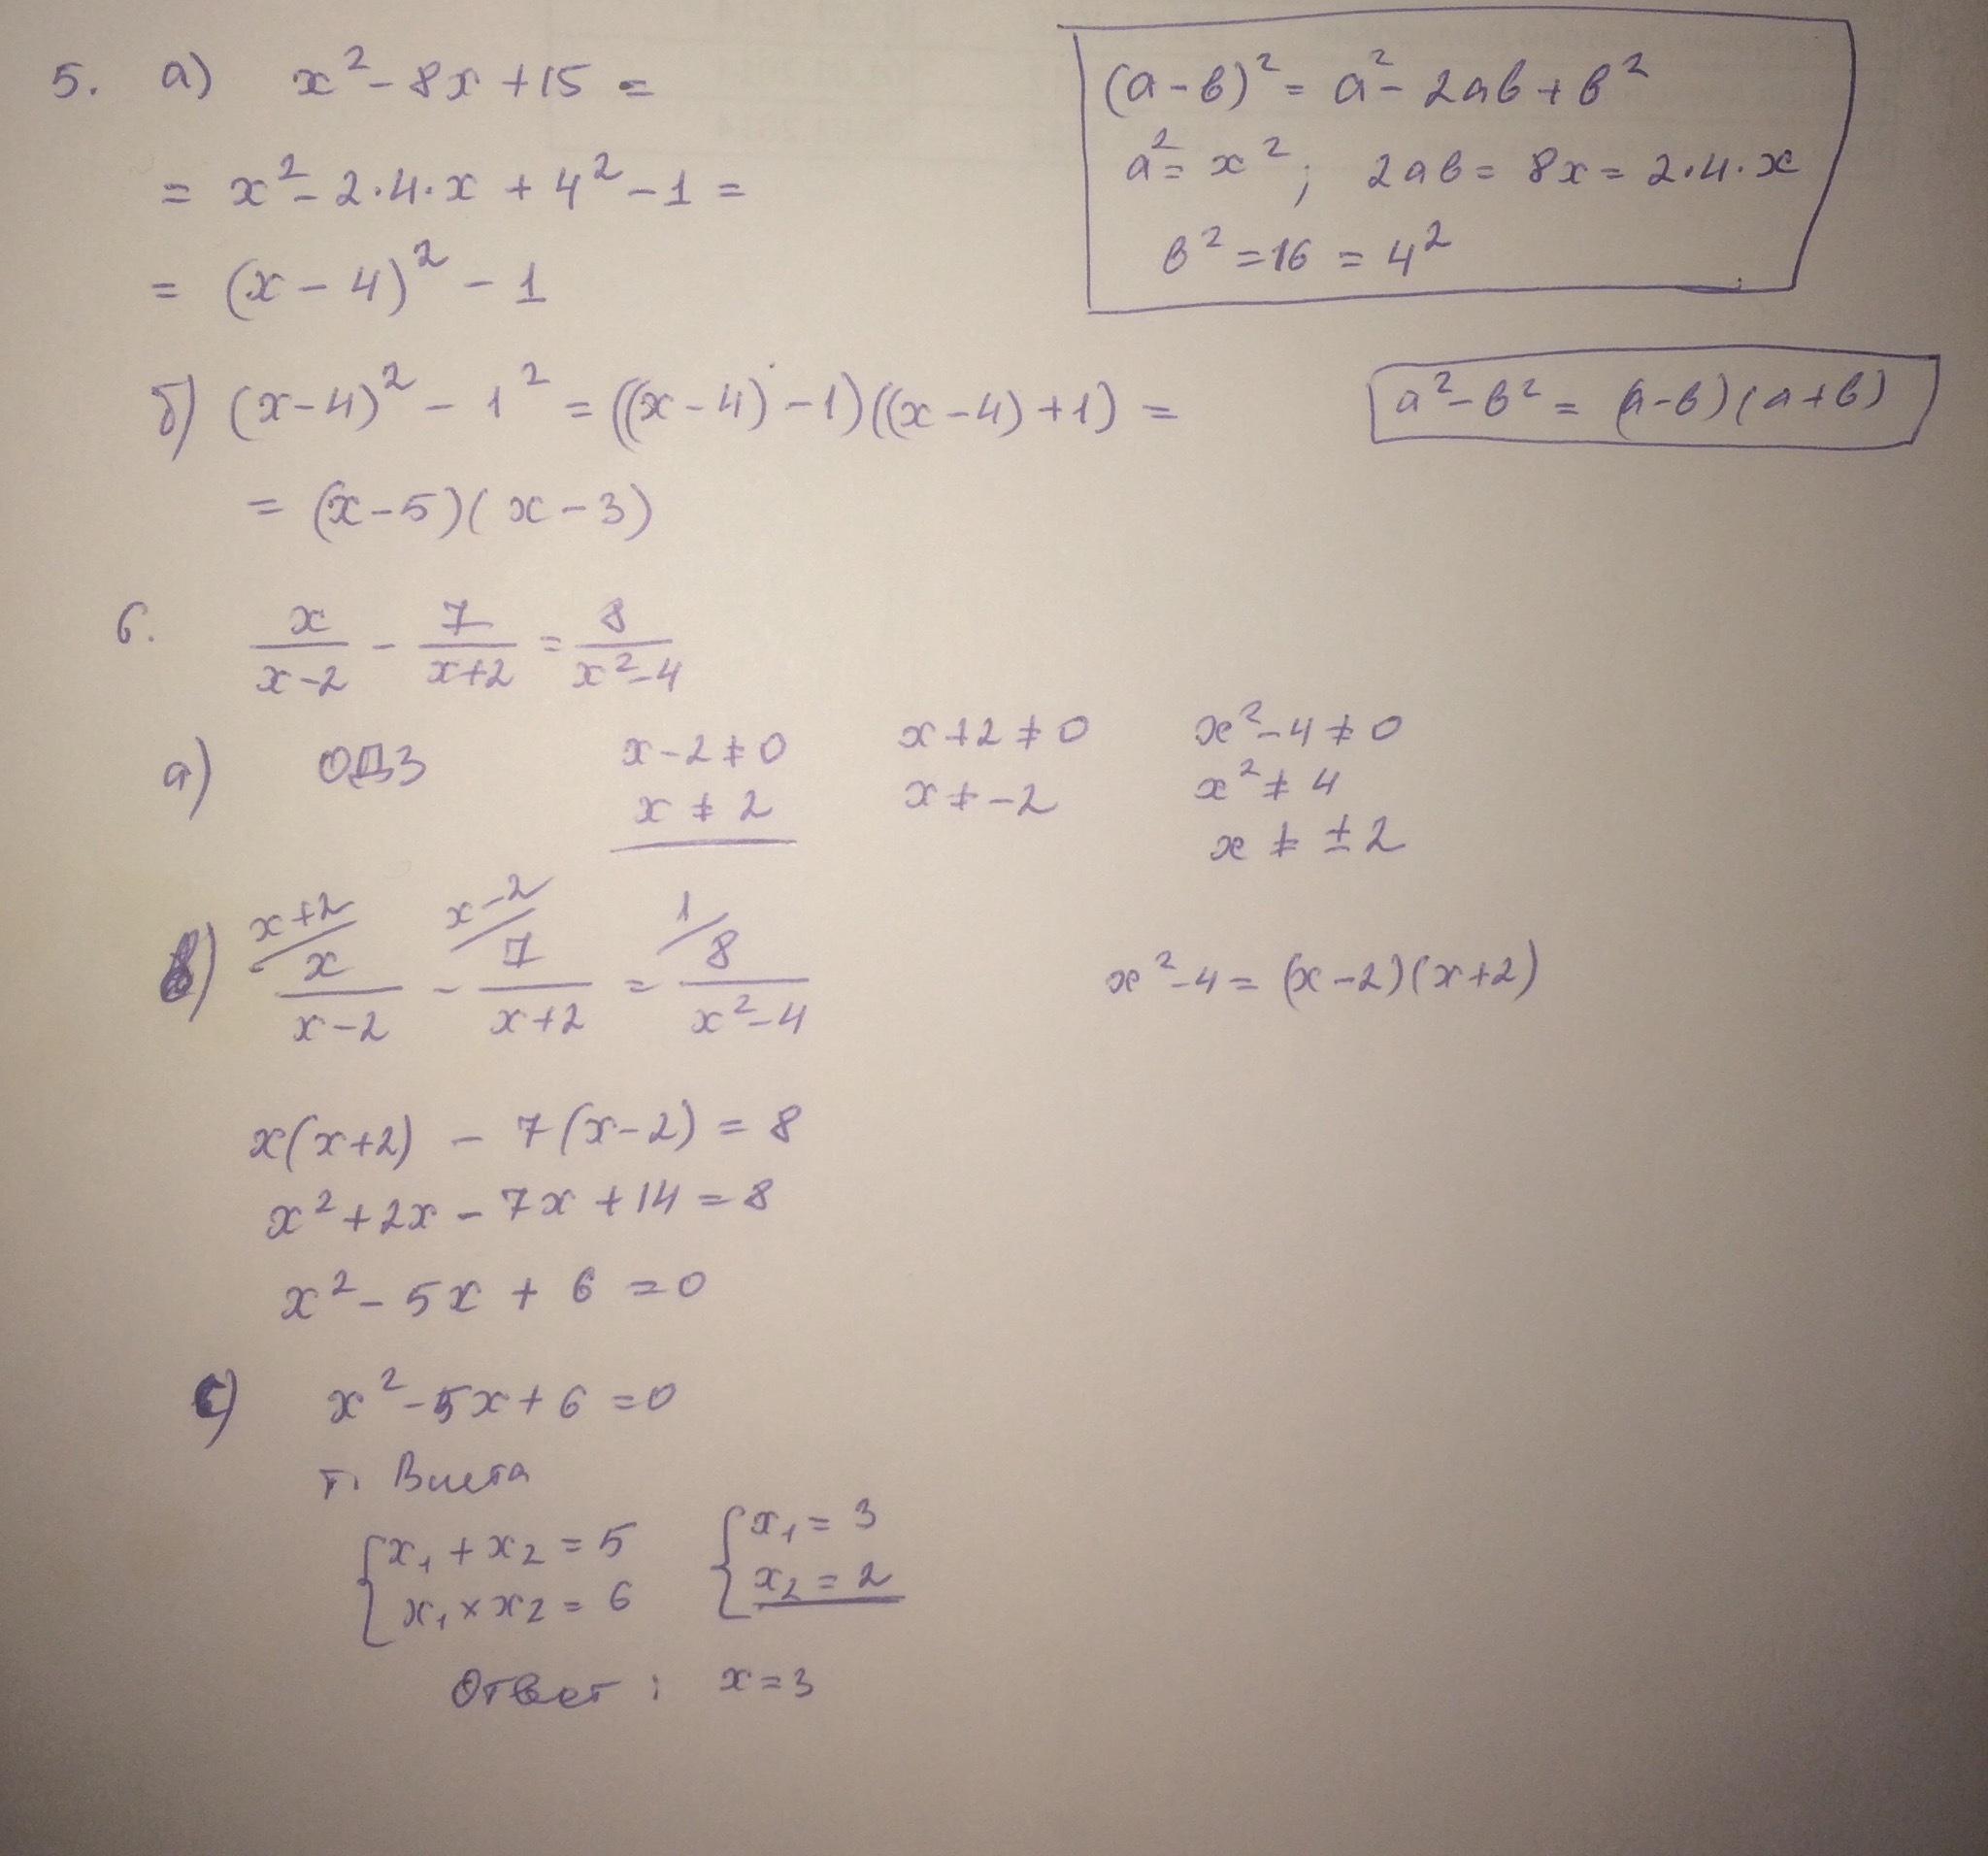 5. а) x² - 8x + 15 =
= x² - 2·4·x + 4² - 1 =
= (x - 4)² - 1
(a - b)² = a² - 2ab + b²
a² = x²; 2ab = 8x = 2·4·x
b² = 16 = 4²
б) (x-4)² - 1² = ((x-4) - 1)((x-4) + 1) =
= (x-5)(x-3)
a² - b² = (a-b)(a+b)
6. x/(x-2) - 7/(x+2) = 8/(x²-4)
а) ОДЗ
x-2≠0
x ≠ 2
x+2≠0
x≠-2
x²-4≠0
x²≠4
x ≠ ±2
x+2 x-2 1
в) x/(x-2) - 7/(x+2) = 8/(x²-4)
x²-4 = (x-2)(x+2)
x(x+2) - 7(x-2) = 8
x² + 2x - 7x + 14 = 8
x² - 5x + 6 = 0
с) x² - 5x + 6 = 0
т. Виета
{x₁ + x₂ = 5
x₁ × x₂ = 6
{x₁ = 3
x₂ = 2
Ответ: x = 3